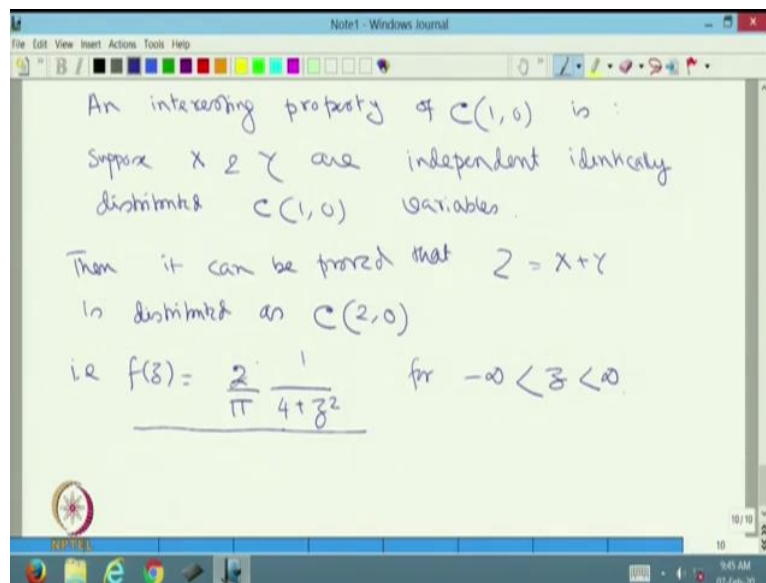 Note1 - Windows Journal
File Edit View Insert Actions Tools Help
An interesting property of C(1,0) is :
Suppose X & Y are independent identically
distributed C(1,0) variables.
Then it can be proved that Z = X+Y
is distributed as C(2,0)
i.e f(z) = 2/π 1/(4+z²) for -∞ < z < ∞.
NPTEL
10/10
10
9:45 AM